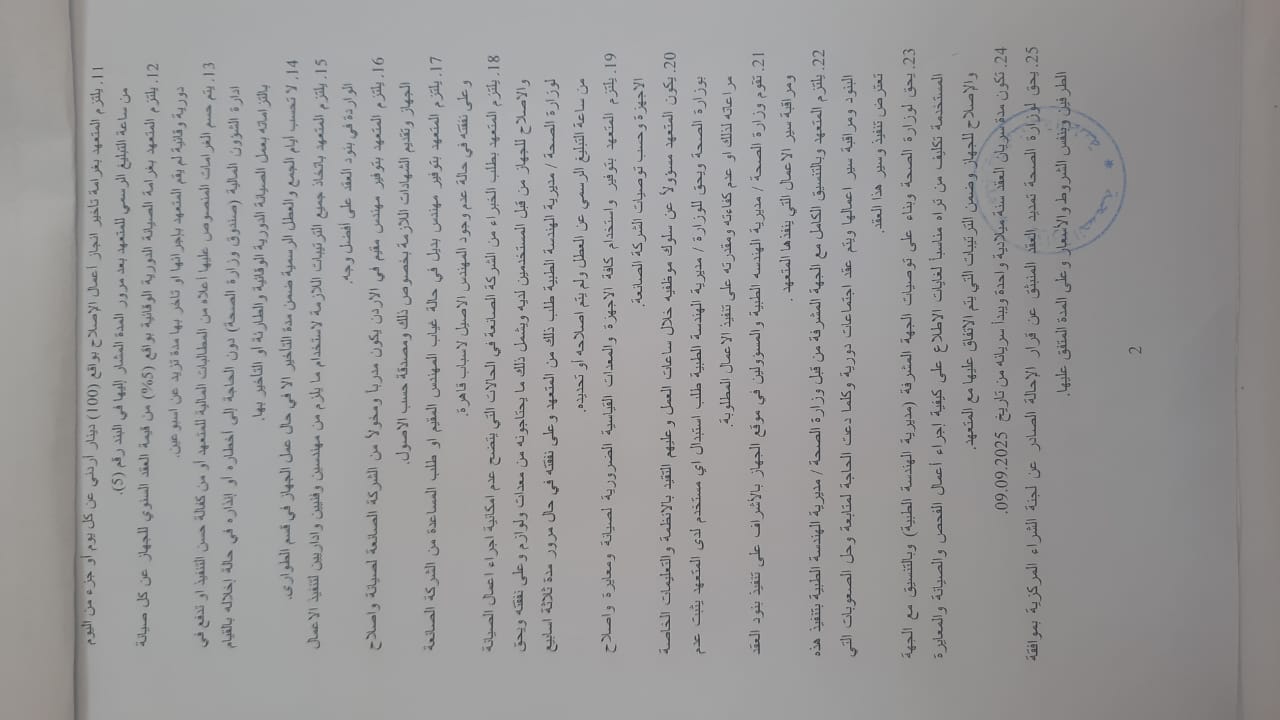 11. يلتزم المتعهد بغرامة تأخير انجاز أعمال الإصلاح بواقع (100) دينار أردني عن كل يوم أو جزء من اليوم
من ساعة التبليغ الرسمي للمتعهد بعد مرور المدة المشار إليها في البند رقم (5).
12. يلتزم المتعهد بغرامة الصيانة الدورية الوقائية بواقع (5%) من قيمة العقد السنوي للجهاز عن كل صيانة
دورية وقائية لم يقم المتعهد بإجرائها او تأخر بها مدة تزيد عن اسبوعين.
13. يتم حسم الغرامات المنصوص عليها أعلاه من المطالبات المالية للمتعهد أو من كفالة حسن التنفيذ او تدفع في
ادارة الشؤون المالية (صندوق وزارة الصحة) دون الحاجة إلى أخطاره او إنذاره في حالة إخلاله بالقيام
بالتزاماته بعمل الصيانة الدورية الوقائية والطارئة او التأخير بها.
14. لا تحسب ايام الجمع والعطل الرسمية ضمن مدة التأخير الا في حال عمل الجهاز في قسم الطوارى.
15. يلتزم المتعهد باتخاذ جميع الترتيبات اللازمة لاستخدام ما يلزم من مهندسين وفنيين واداريين لتنفيذ الاعمال
الواردة في بنود العقد على أفضل وجه.
16. يلتزم المتعهد بتوفير مهندس مقيم في الاردن يكون مدرباً ومخولاً من الشركة الصانعة لصيانة واصلاح
الجهاز وتقديم الشهادات اللازمة بخصوص ذلك ومصدقة حسب الاصول.
17. يلتزم المتعهد بتوفير مهندس بديل في حالة غياب المهندس المقيم او طلب المساعدة من الشركة الصانعة
وعلى نفقته في حالة عدم وجود المهندس الاصيل لاسباب قاهرة.
18. يلتزم المتعهد بطلب الخبراء من الشركة الصانعة في الحالات التي يتضح عدم امكانية اجراء اعمال الصيانة
والاصلاح للجهاز من قبل المستخدمين لديه ويشمل ذلك ما يحتاجونه من معدات ولوازم وعلى نفقته ويحق
لوزارة الصحة / مديرية الهندسة الطبية طلب ذلك من المتعهد وعلى نفقته في حال مرور مدة ثلاثة اسابيع
من ساعة التبليغ الرسمي عن العطل ولم يتم اصلاحه او تحديده.
19. يلتزم المتعهد بتوفير واستخدام كافة الاجهزة والمعدات القياسية الضرورية لصيانة ومعايرة واصلاح
الاجهزة وحسب توصيات الشركة الصانعة.
20. يكون المتعهد مسؤولاً عن سلوك موظفيه خلال ساعات العمل وعليهم التقيد بالانظمة والتعليمات الخاصة
بوزارة الصحة ويحق للوزارة / مديرية الهندسة الطبية طلب استبدال اي مستخدم لدى المتعهد يثبت عدم
مراعاته لذلك او عدم كفاءته ومقدرته على تنفيذ الاعمال المطلوبة.
21. تقوم وزارة الصحة / مديرية الهندسه الطبية والمسؤولين في موقع الجهاز بالأشراف على تنفيذ بنود العقد
ومراقبة سير الاعمال التي ينفذها المتعهد .
22. يلتزم المتعهد وبالتنسيق الكامل مع الجهة المشرفة من قبل وزارة الصحة / مديرية الهندسة الطبية بتنفيذ هذه
البنود ومراقبة سير اعمالها ويتم عقد اجتماعات دورية وكلما دعت الحاجة لمتابعة وحل الصعوبات التي
تعترض تنفيذ وسير هذا العقد.
23. يحق لوزارة الصحة وبناء على توصيات الجهة المشرفة (مديرية الهندسة الطبية) وبالتنسيق مع الجهة
المستخدمة تكليف من تراه مناسباً لغايات الاطلاع على كيفية إجراء أعمال الفحص والصيانة والمعايرة
والإصلاح للجهاز وضمن الترتيبات التي يتم الاتفاق عليها مع المتعهد.
24. تكون مدة سريان العقد سنة ميلادية واحدة ويبدأ سريانه من تاريخ 09.09.2025.
25. يحق لوزارة الصحة تمديد العقد المنبثق عن قرار الإحالة الصادر عن لجنة الشراء المركزية بموافقة
الطرفين وبنفس الشروط والأسعار وعلى المدة المتفق عليها.
2